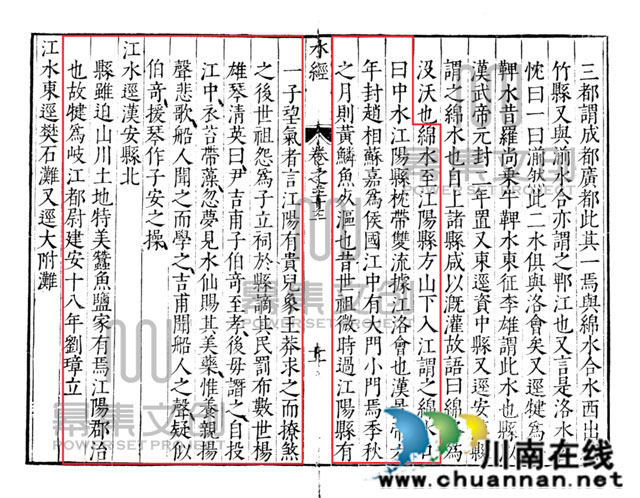 三都謂成都廣都此其一焉與綿水合水西出
竹縣又與湔水合亦謂之郫江也又言是洛水
忱曰一曰湔然此二水俱與洛會矣又逕犍為
鞞水昔羅尚乘牛鞞水東征李雄謂此水也縣以
漢武帝元封二年置又東逕資中縣又逕安
謂之綿水也自上諸縣咸以溉灌故語曰綿為
沒沃也綿水至江陽縣方山下入江謂之綿水口
曰中水江陽縣枕帶雙流據江洛會也漢景帝
年封趙相蘇嘉為侯國江中有大門小門焉季秋
之月則黃鱗魚放也昔世祖微時過江陽縣有
水經 卷之三十三
一子望氣者言江陽有貴兒象王莽求之而獠煞
之後世祖怨為子立祠於縣謫其民罰布數世揚
雄琴清英曰尹吉甫子伯奇至孝後母譖之自投
江中衣苔帶藻忽夢見水仙賜其美藥惟養親揚
聲悲歌船人聞之而學之吉甫聞船人之聲疑似
伯奇援琴作子安之操
江水逕漢安縣北
縣雖迫山川土地特美蠶魚鹽家有焉江陽郡治
也故犍為岐江都尉建安十八年劉璋立
江水東逕樊石灘又逕大附灘
幕集文创
POWERSET PROJECT
川南在线
www.chuannan.net